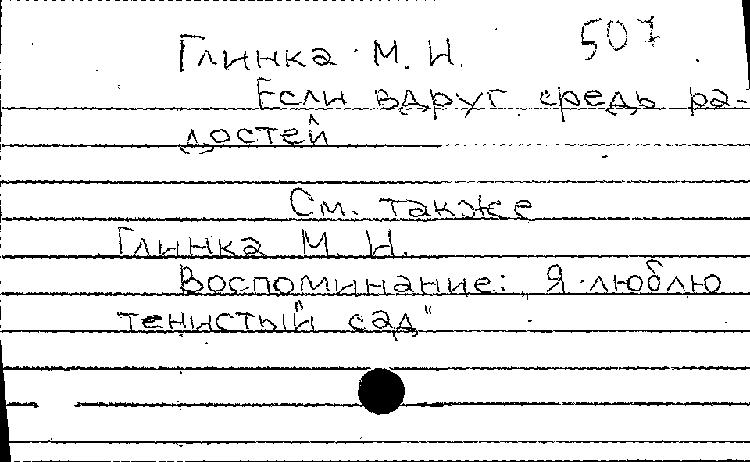 507
Глинка М. И.
Если вдруг средь ра-
достей
См. также
Глинка М. И.
Воспоминание: „Я люблю
тенистый сад"